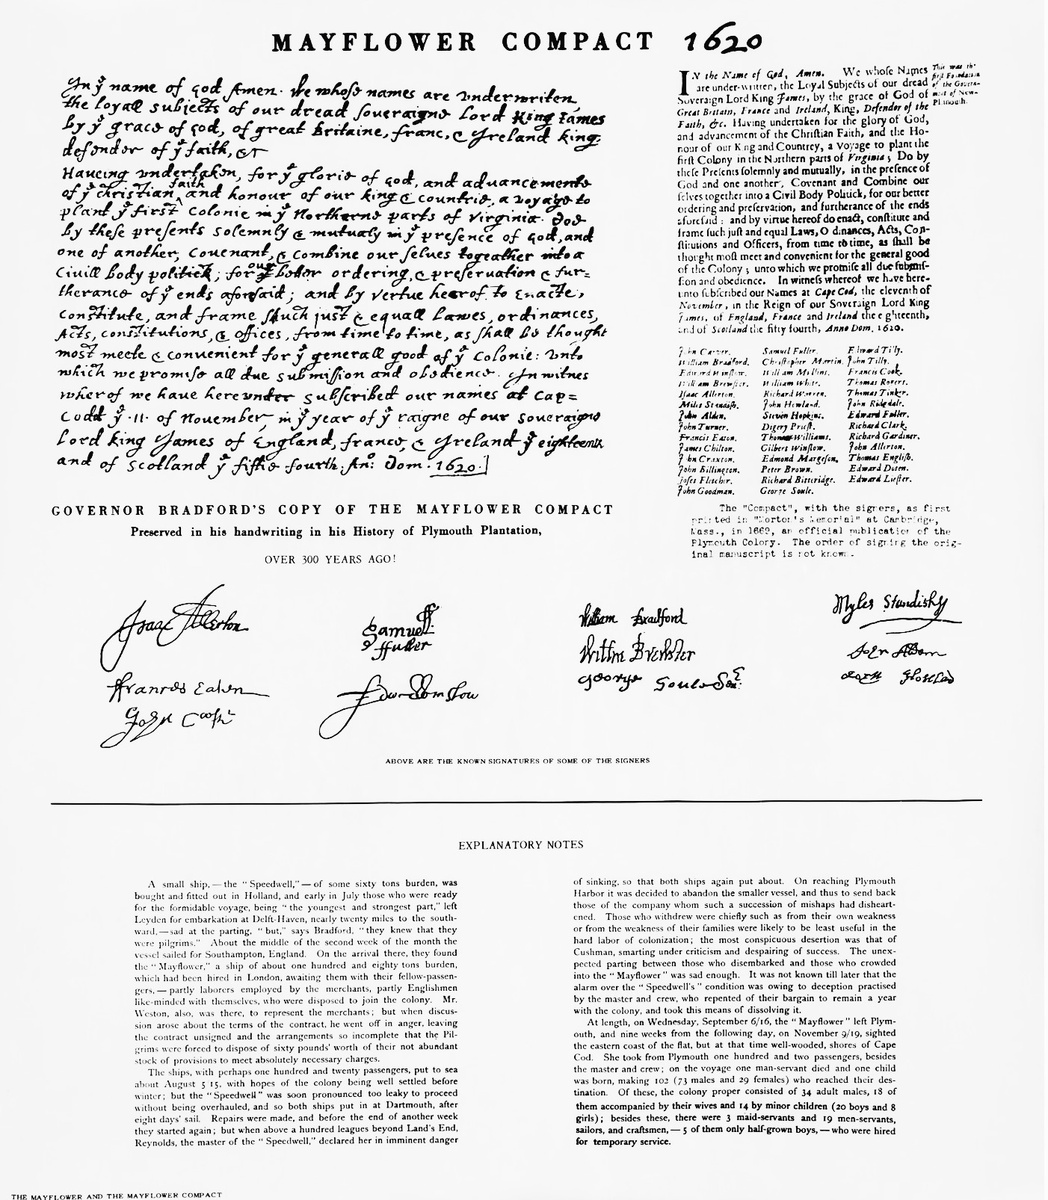 MAYFLOWER COMPACT 1620
In yͤ name of god Amen. We whose names are underwriten,
the loyall subjects of our dread soveraigne Lord King James
by yͤ grace of god, of great Britaine, franc, & Ireland king,
defender of yͤ faith, &c
Haveing undertaken, for yͤ glorie of god, and advancemente
of yͤ christian faith and honour of our king & countrie, a voyage to
plant yͤ first colonie in yͤ Northerne parts of Virginia. Doe
by these presents solemnly & mutualy in yͤ presence of god, and
one of another, covenant, & combine our selves togeather into a
Civill body politick; for our better ordering, & preservation & fur=
therance of yͤ ends aforesaid; and by vertue hearof to Enacte,
constitute, and frame such just & equall Lawes, ordinances,
Acts, constitutions, & offices, from time to time, as shall be thought
most meete & convenient for yͤ generall good of yͤ Colonie: Unto
which we promise all due submission and obedience. In witnes
wherof we have hereunder subscribed our names at Cap=
Codd yͤ .11. of November, in yͤ year of yͤ raigne of our soveraigne
Lord king James of England, france, & Ireland yͤ eighteenth
and of Scotland yͤ fiftie fourth. An: Dom. 1620.
GOVERNOR BRADFORD'S COPY OF THE MAYFLOWER COMPACT
Preserved in his handwriting in his History of Plymouth Plantation,
OVER 300 YEARS AGO!
IN the Name of God, Amen. We whose Names
are under-written, the Loyal Subjects of our dread
Soveraign Lord King James, by the grace of God of
Great Britain, France and Ireland, King, Defender of the
Faith, &c. Having undertaken for the glory of God,
and advancement of the Christian Faith, and the Ho-
nour of our King and Countrey, a Voyage to plant the
first Colony in the Northern parts of Virginia; Do by
these Presents solemnly and mutually, in the presence of
God and one another, Covenant and Combine our
selves together into a Civil Body Politick, for our better
ordering and preservation, and furtherance of the ends
aforesaid: and by virtue hereof do enact, constitute and
frame such just and equal Laws, Ordinances, Acts, Con-
stitutions and Officers, from time to time, as shall be
thought most meet and convenient for the general good
of the Colony; unto which we promise all due submis-
sion and obedience. In witness whereof we have here-
unto subscribed our Names at Cape Cod, the eleventh of
November, in the Reign of our Soveraign Lord King
James, of England, France and Ireland the eighteenth,
and of Scotland the fifty fourth, Anno Dom. 1620.
This was the
first Foundation
of the Govern-
ment of New-
Plimouth.
John Carver. Samuel Fuller. Edward Tilly.
William Bradford. Christopher Martin. John Tilly.
Edward Winslow. William Mullins. Francis Cook.
William Brewster. William White. Thomas Rogers.
Isaac Allerton. Richard Warren. Thomas Tinker.
Miles Standish. John Howland. John Ridgdale.
John Alden. Steven Hopkins. Edward Fuller.
John Turner. Digery Priest. Richard Clark.
Francis Eaton. Thomas Williams. Richard Gardiner.
James Chilton. Gilbert Winslow. John Allerton.
John Craxton. Edmond Margeson. Thomas English.
John Billington. Peter Brown. Edward Doten.
Joses Fletcher. Richard Bitteridge. Edward Liester.
John Goodman. George Soule.
The "Compact", with the signers, as first
printed in "Morton's Memorial" at Cambridge,
Mass., in 1669, an official publication of the
Plymouth Colony. The order of signing the orig-
inal manuscript is not known.
Isaac Allerton
Samuel
ffuller
William Bradford
Myles Standish
Willm Brewster
John Alden
Frances Eaton
Edw Winslow
George Soule Senr
John Cooke
ABOVE ARE THE KNOWN SIGNATURES OF SOME OF THE SIGNERS
EXPLANATORY NOTES
A small ship,—the "Speedwell,"—of some sixty tons burden, was
bought and fitted out in Holland, and early in July those who were ready
for the formidable voyage, being "the youngest and strongest part," left
Leyden for embarkation at Delft-Haven, nearly twenty miles to the south-
ward,—sad at the parting, "but," says Bradford, "they knew that they
were pilgrims." About the middle of the second week of the month the
vessel sailed for Southampton, England. On the arrival there, they found
the "Mayflower," a ship of about one hundred and eighty tons burden,
which had been hired in London, awaiting them with their fellow-passen-
gers,—partly laborers employed by the merchants, partly Englishmen
like-minded with themselves, who were disposed to join the colony. Mr.
Weston, also, was there, to represent the merchants; but when discus-
sion arose about the terms of the contract, he went off in anger, leaving
the contract unsigned and the arrangements so incomplete that the Pil-
grims were forced to dispose of sixty pounds' worth of their not abundant
stock of provisions to meet absolutely necessary charges.
The ships, with perhaps one hundred and twenty passengers, put to sea
about August 5 15, with hopes of the colony being well settled before
winter; but the "Speedwell" was soon pronounced too leaky to proceed
without being overhauled, and so both ships put in at Dartmouth, after
eight days' sail. Repairs were made, and before the end of another week
they started again; but when above a hundred leagues beyond Land's End,
Reynolds, the master of the "Speedwell," declared her in imminent danger
of sinking, so that both ships again put about. On reaching Plymouth
Harbor it was decided to abandon the smaller vessel, and thus to send back
those of the company whom such a succession of mishaps had disheart-
ened. Those who withdrew were chiefly such as from their own weakness
or from the weakness of their families were likely to be least useful in the
hard labor of colonization; the most conspicuous desertion was that of
Cushman, smarting under criticism and despairing of success. The unex-
pected parting between those who disembarked and those who crowded
into the "Mayflower" was sad enough. It was not known till later that the
alarm over the "Speedwell's" condition was owing to deception practised
by the master and crew, who repented of their bargain to remain a year
with the colony, and took this means of dissolving it.
At length, on Wednesday, September 6/16, the "Mayflower" left Plym-
outh, and nine weeks from the following day, on November 9/19, sighted
the eastern coast of the flat, but at that time well-wooded, shores of Cape
Cod. She took from Plymouth one hundred and two passengers, besides
the master and crew; on the voyage one man-servant died and one child
was born, making 102 (73 males and 29 females) who reached their des-
tination. Of these, the colony proper consisted of 34 adult males, 18 of
them accompanied by their wives and 14 by minor children (20 boys and 8
girls); besides these, there were 3 maid-servants and 19 men-servants,
sailors, and craftsmen,—5 of them only half-grown boys,—who were hired
for temporary service.
THE MAYFLOWER AND THE MAYFLOWER COMPACT